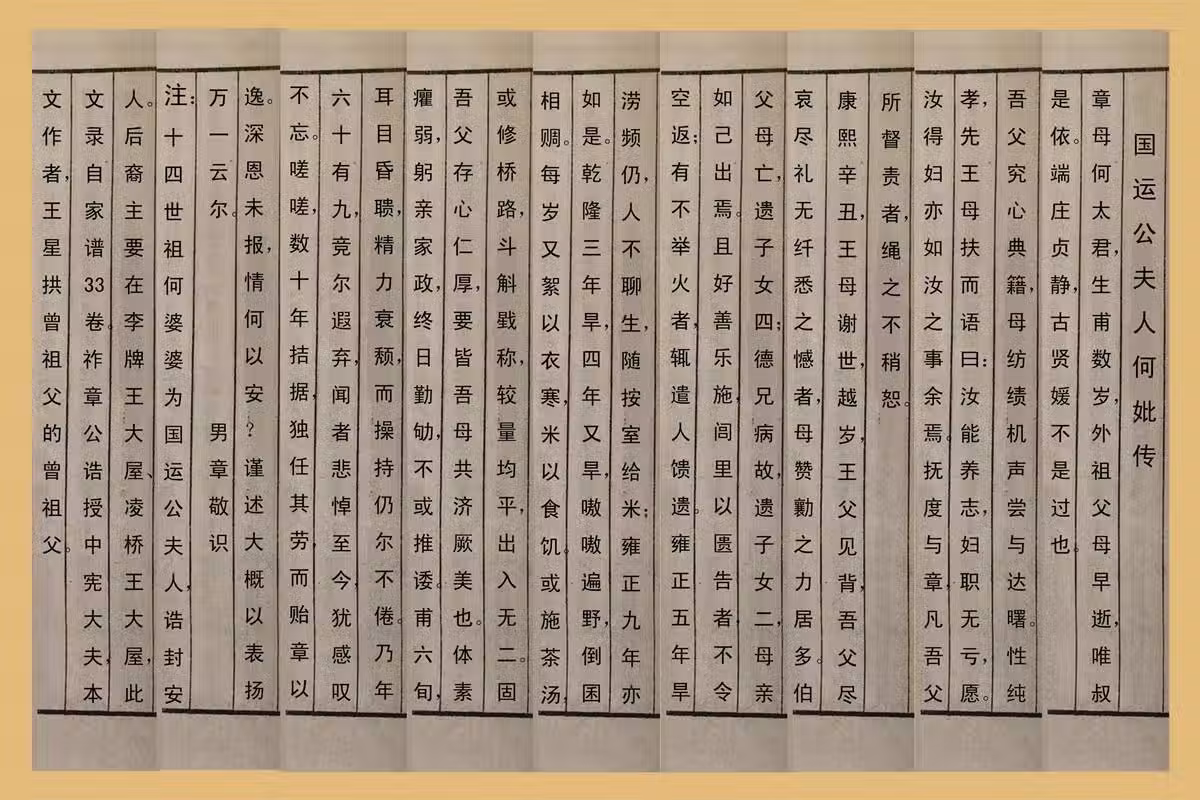 国运公夫人何妣传
章母何太君，生甫数岁，外祖父母早逝，唯叔
是依。端庄贞静，古贤媛不是过也。
吾父究心典籍，母纺绩机声尝与达曙。性纯
孝，先王母扶而语曰：汝能养志，妇职无亏，愿。
汝得妇亦如汝之事余焉。抚度与章，凡吾父
所督责者，绳之不稍恕。
康熙辛丑，王母谢世，越岁，王父见背，吾父尽
哀尽礼无纤悉之憾者，母赞勷之力居多。伯
父母亡，遗子女四；德兄病故，遗子女二，母亲
如己出焉。且好善乐施，闾里以匮告者，不令
空返；有不举火者，辄遣人馈遗。雍正五年旱
涝频仍，人不聊生，随按室给米；雍正九年亦
如是。乾隆三年旱，四年又旱，嗷嗷遍野，倒囷
相赒。每岁又絮以衣寒，米以食饥。或施茶汤，
或修桥路，斗斛戥称，较量均平，出入无二。固
吾父存心仁厚，要皆吾母共济厥美也。体素
癯弱，躬亲家政，终日勤劬，不或推诿。甫六旬，
耳目昏聩，精力衰颓，而操持仍尔不倦。乃年
六十有九，竞尔遐弃，闻者悲悼至今，犹感叹
不忘。嗟嗟，数十年拮据，独任其劳，而贻章以
逸。深恩未报，情何以安？谨述大概以表扬
万一云尔。 男章敬识
注：十四世祖何婆婆为国运公夫人，诰封安
人。后裔主要在李牌王大屋、凌桥王大屋，此
文录自家谱33卷。祚章公诰授中宪大夫，本
文作者，王星拱曾祖父的曾祖父。